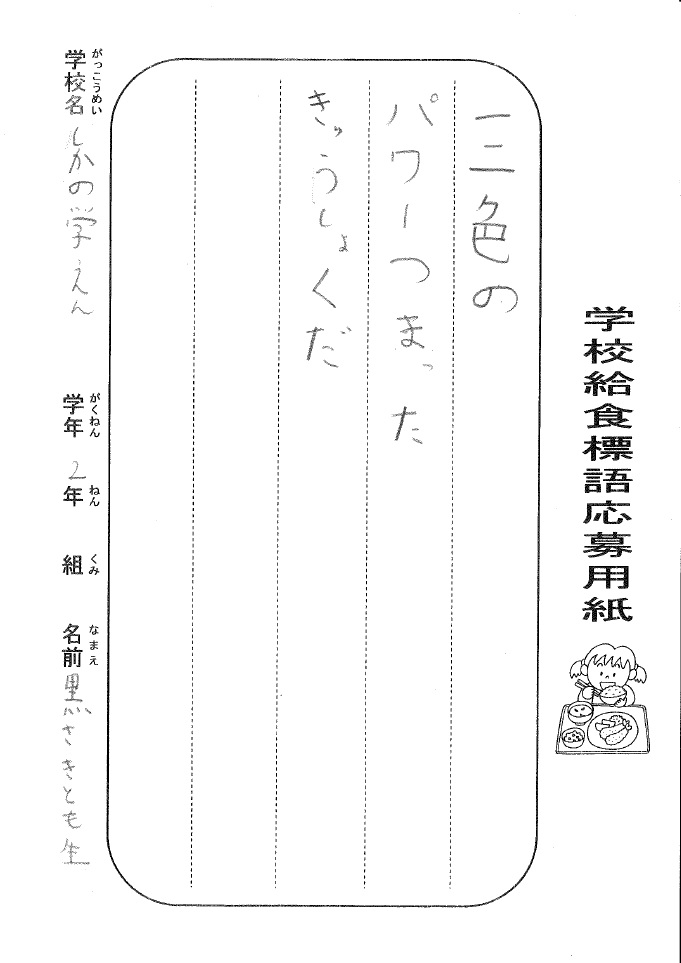 学校給食標語応募用紙
三色の
パワーつまった
きゅうしょくだ
がっこうめい
学校名 しかの学えん
がくねん
学年 2年
ねん
組
くみ
名前 黒さきとも生
なまえ